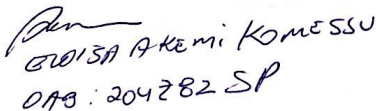 ELOISA AKEMI KOMESSU
OAB: 204782 SP